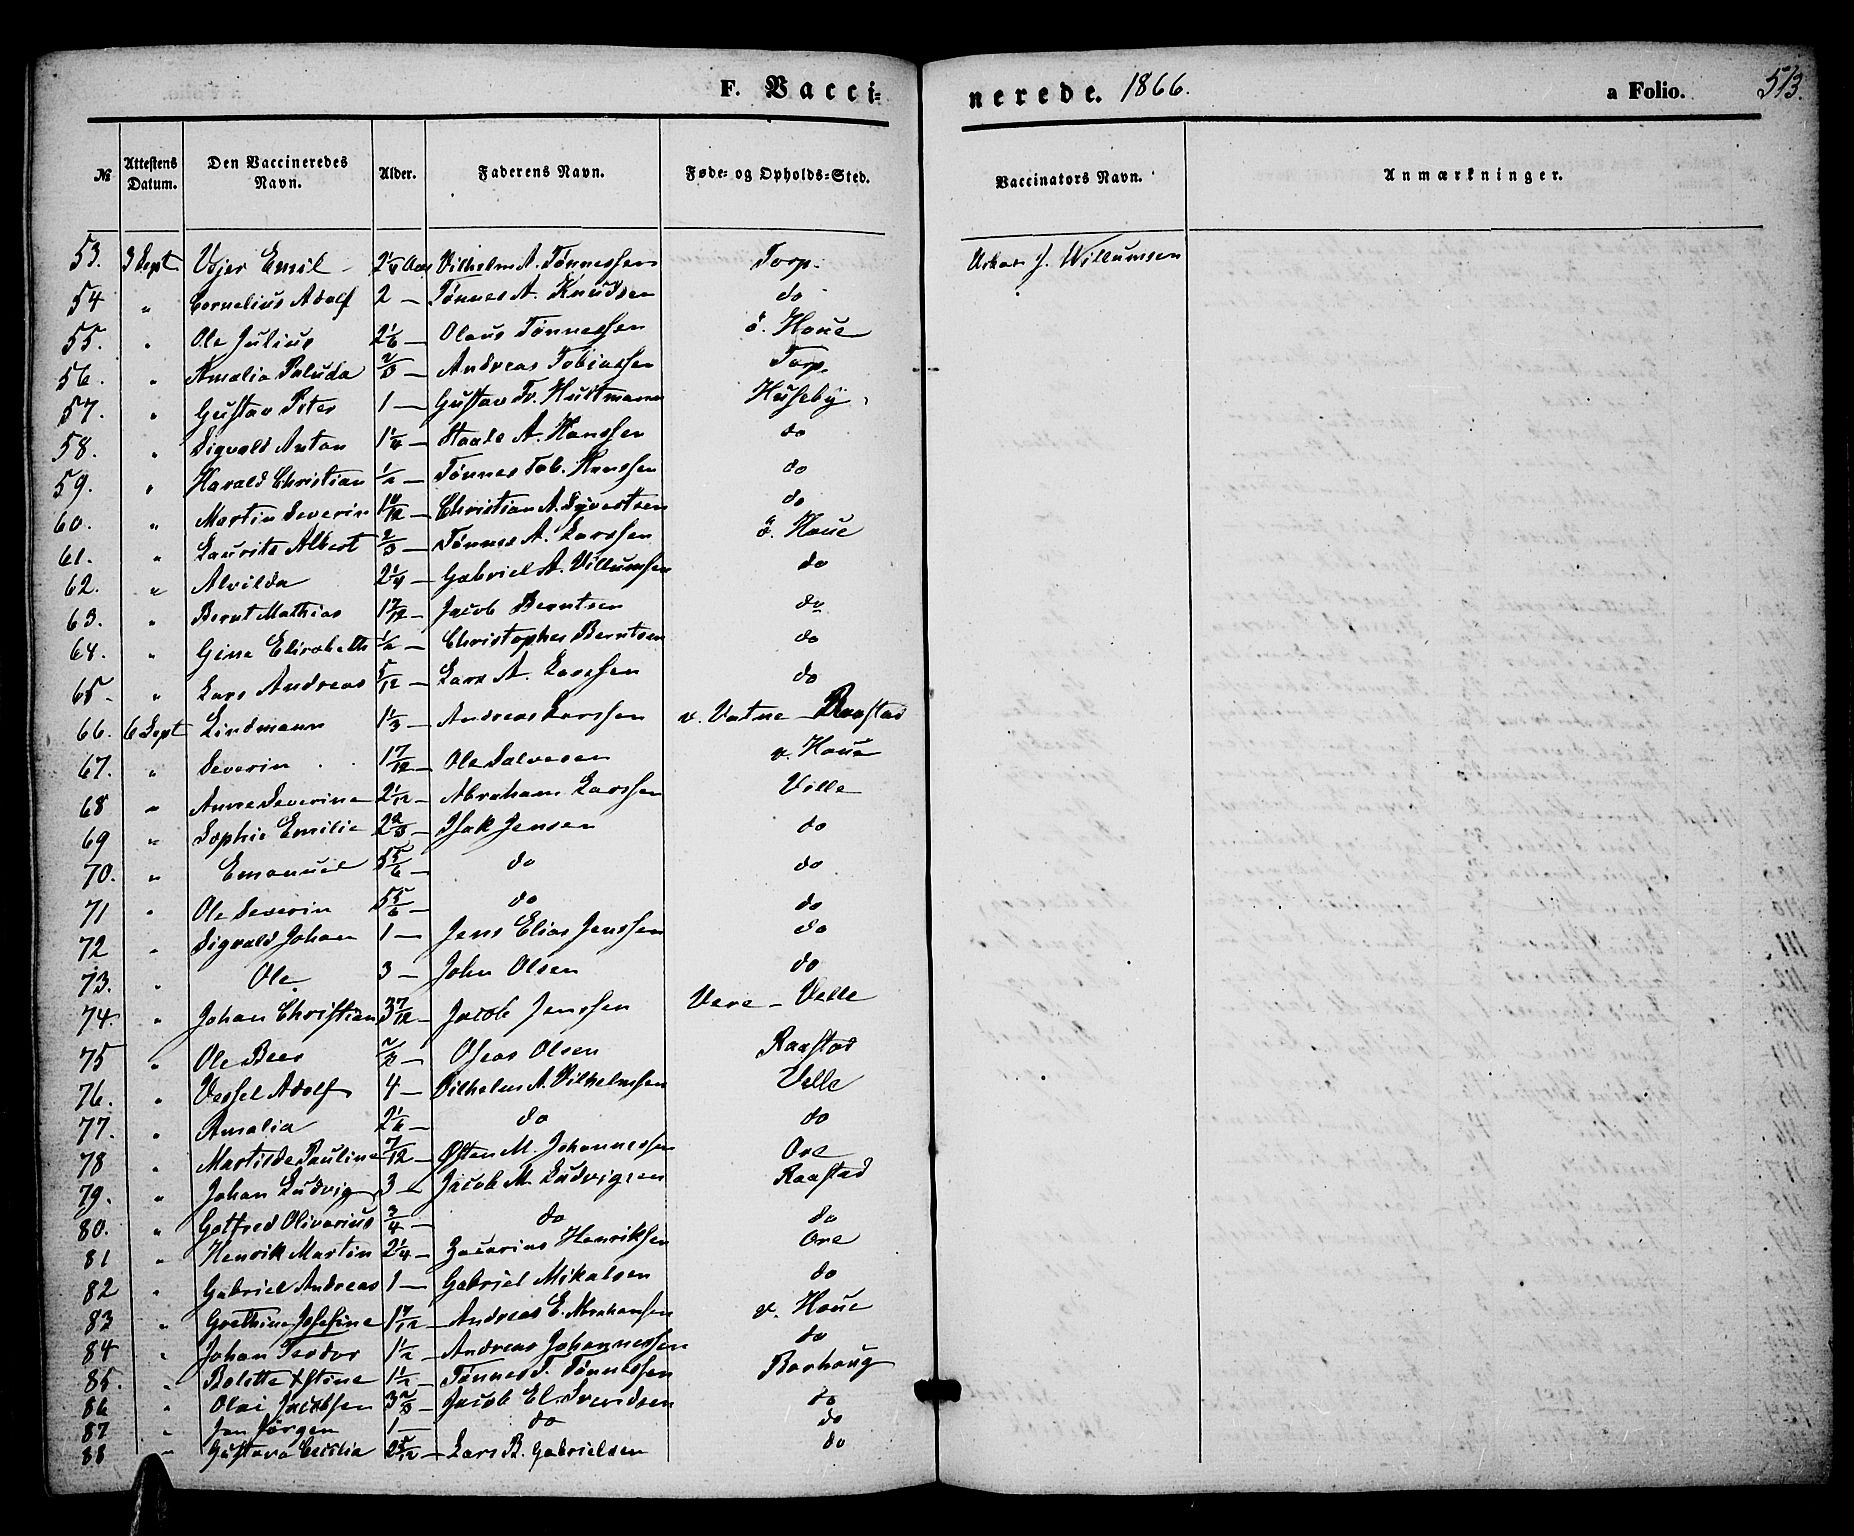 F. Vacci-
nerede. 1866. a Folio. 513.
№ Attestens Datum. Den Vaccineredes Navn. Alder. Faderens Navn. Føde- og Opholds-Sted. Vaccinators Navn. Anmærkninger.
53. 3 Sept. Emil 2 1/4 Aar Vilhelm A. Tønnessen Torp. J. Willumsen
54 " Cornelius Adolf 2 — Tønnes A. Knudsen do
55. " Ole Julius 2 1/6 — Olaus Tønnessen ö. Houe
56. " Amalia Paluda 2/3 — Andreas Tobiassen Torp.
57. " Gustav Peter 1 — Gustav Fr. Huttmann Huseby
58. " Sigvald Anton 1 1/4 — A. Hanssen do
59. " Harald Christian 1/2 — Tønnes Tob. Hanssen do
60. " Martin Severin 1 10/12 — Christian A. Syvertsen do
61. " Laurits Albert 2/3 — Tønnes A. Larssen ö. Houe
62. " Alvilda 2 1/4 — Gabriel A. Villumsen do
63. " Bernt Mathias 1 7/12 — Jacob Berntsen do
64. " Gine Elisabeth 1/2 — Christopher Berntsen do
65. " Lars Andreas 5/12 — Lars A. Larssen do
66. 6 Sept Lindmann 1 1/3 — Andreas Larssen v. Vatne — Raastad
67. " Severin 1 7/12 — Ole Salvesen v. Houe
68 " Anne Severine 2 1/12 — Abraham Larssen Velle
69 " Sophie Emilie 2 2/3 — Isak Jensen do
70. " Emanuel 5 5/6 — do do
71 " Ole Severin 5 5/6 — do do
72 " Sigvald Johan 1 — Jens Elias Jenssen do
73. " Ole 3 — John Olsen do
74. " Johan Christian 3 7/12 — Jacob Jenssen Vere — Velle
75 " Ole Olsen Raastad
76. " Vessel Adolf 4 — Vilhelm A. Vilhelmsen Velle
77. " Amalia 2 1/6 — do do
78 " Martilde Pauline 7/12 — Østen M. Johannessen Ore
79. " Johan Ludvig 3 — Jacob M. Ludvigsen Raastad
80. " Gotfred Olivarius 3/4 — do do
81 " Henrik Martin 2 1/4 — Zacarias Henriksen Ore
82 " Gabriel Andreas 1 — Gabriel Mikalsen do
83 " Grethine Josefine 1 7/12 — Andreas E. Abrahamsen v. Houe
84 " Johan Teodor 1 1/2 — Andreas Johannessen do
85. " Bolette Stine 1 1/2 — Tønnes T. Tønnessen Borhaug
86 " Olai Jacobsen 3 2/3 — Jacob El. Svendsen do
87 " Jan Jørgen 1 — do do
88 " Gustava Cecilia 2 5/12 — Lars B. Gabrielsen do